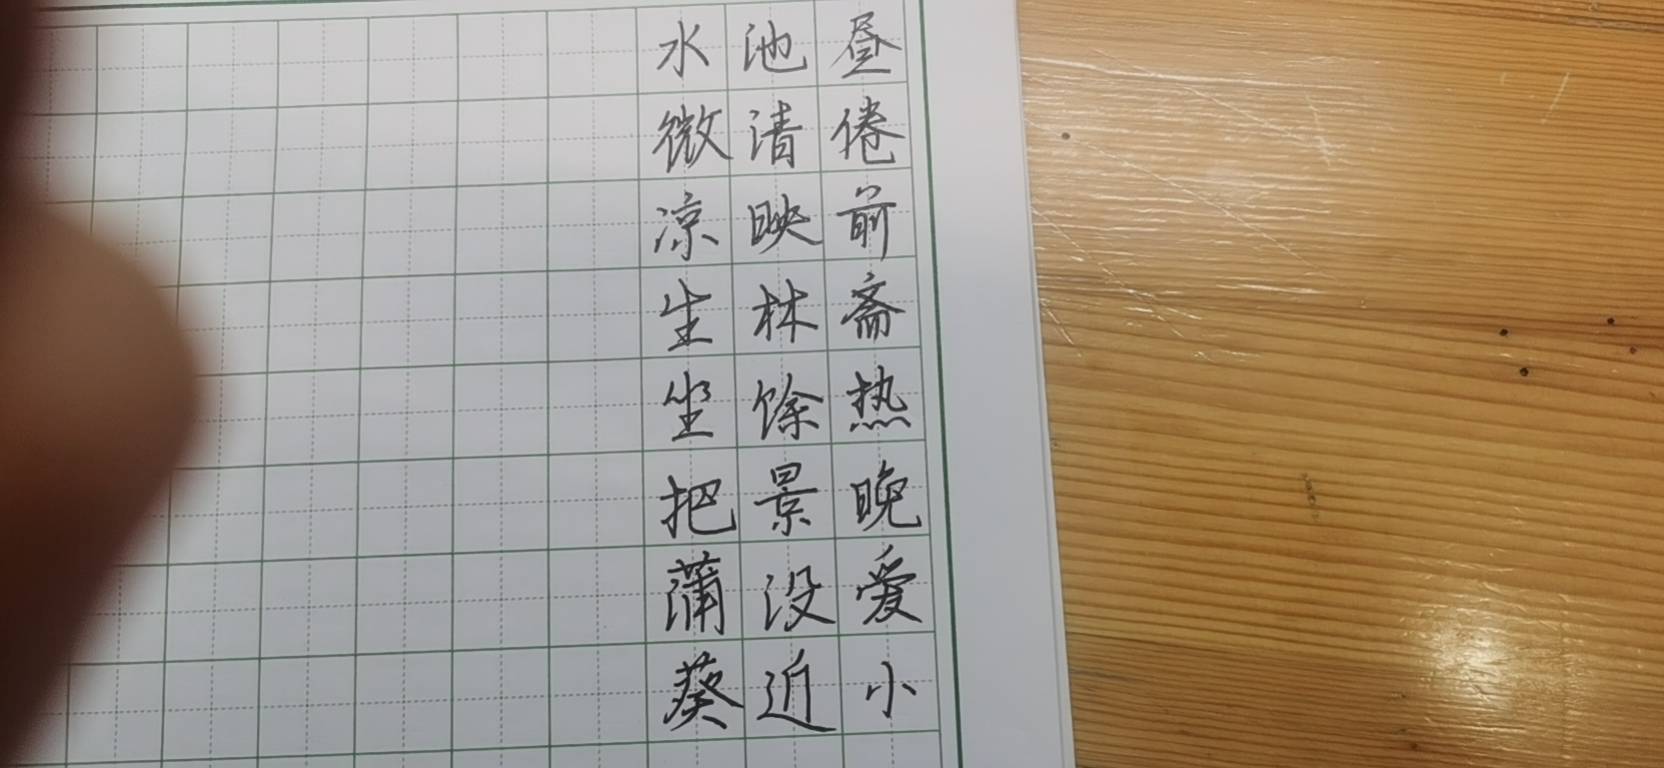 昼倦前斋热晚爱小
池清映林馀景没近
水微凉生坐把蒲葵